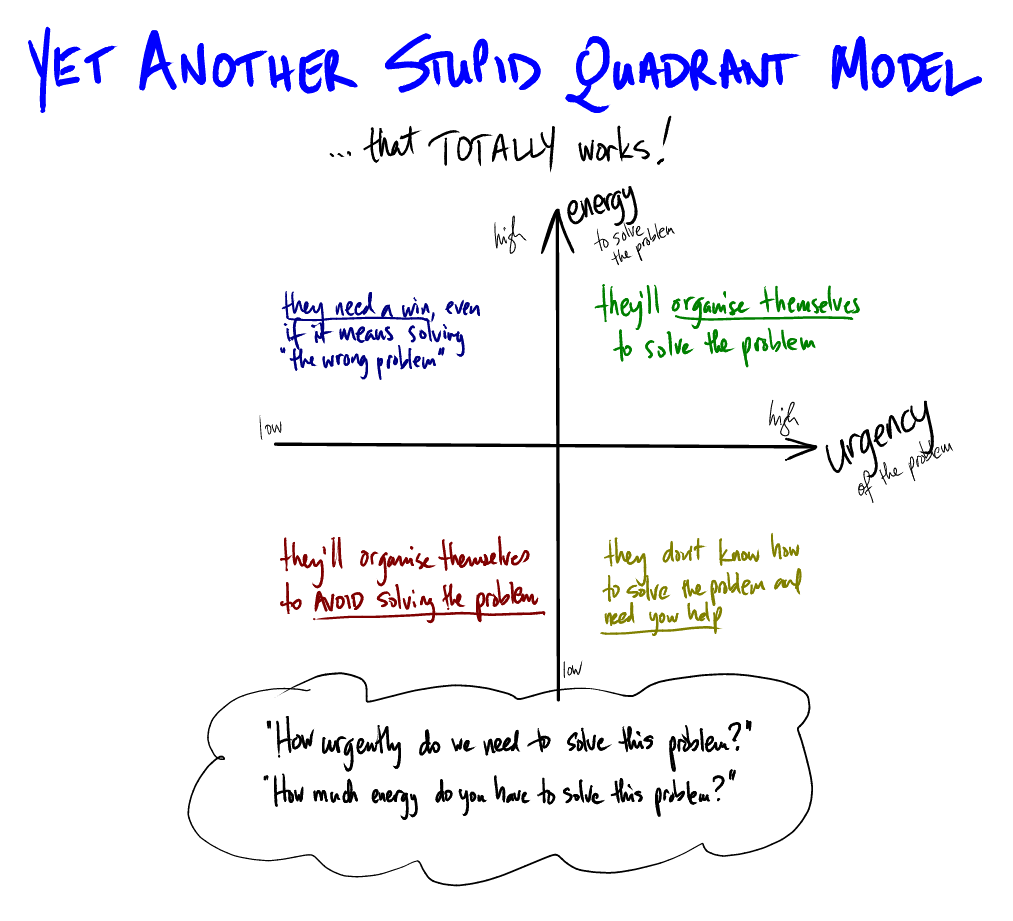 YET ANOTHER STUPID QUADRANT MODEL
... that TOTALLY works!
energy
to solve
the problem
high
they need a win, even
if it means solving
"the wrong problem"
they'll organise themselves
to solve the problem
low
high
urgency
of the problem
they'll organise themselves
to AVOID solving the problem
they don't know how
to solve the problem and
need your help
low
"How urgently do we need to solve this problem?"
"How much energy do you have to solve this problem?"